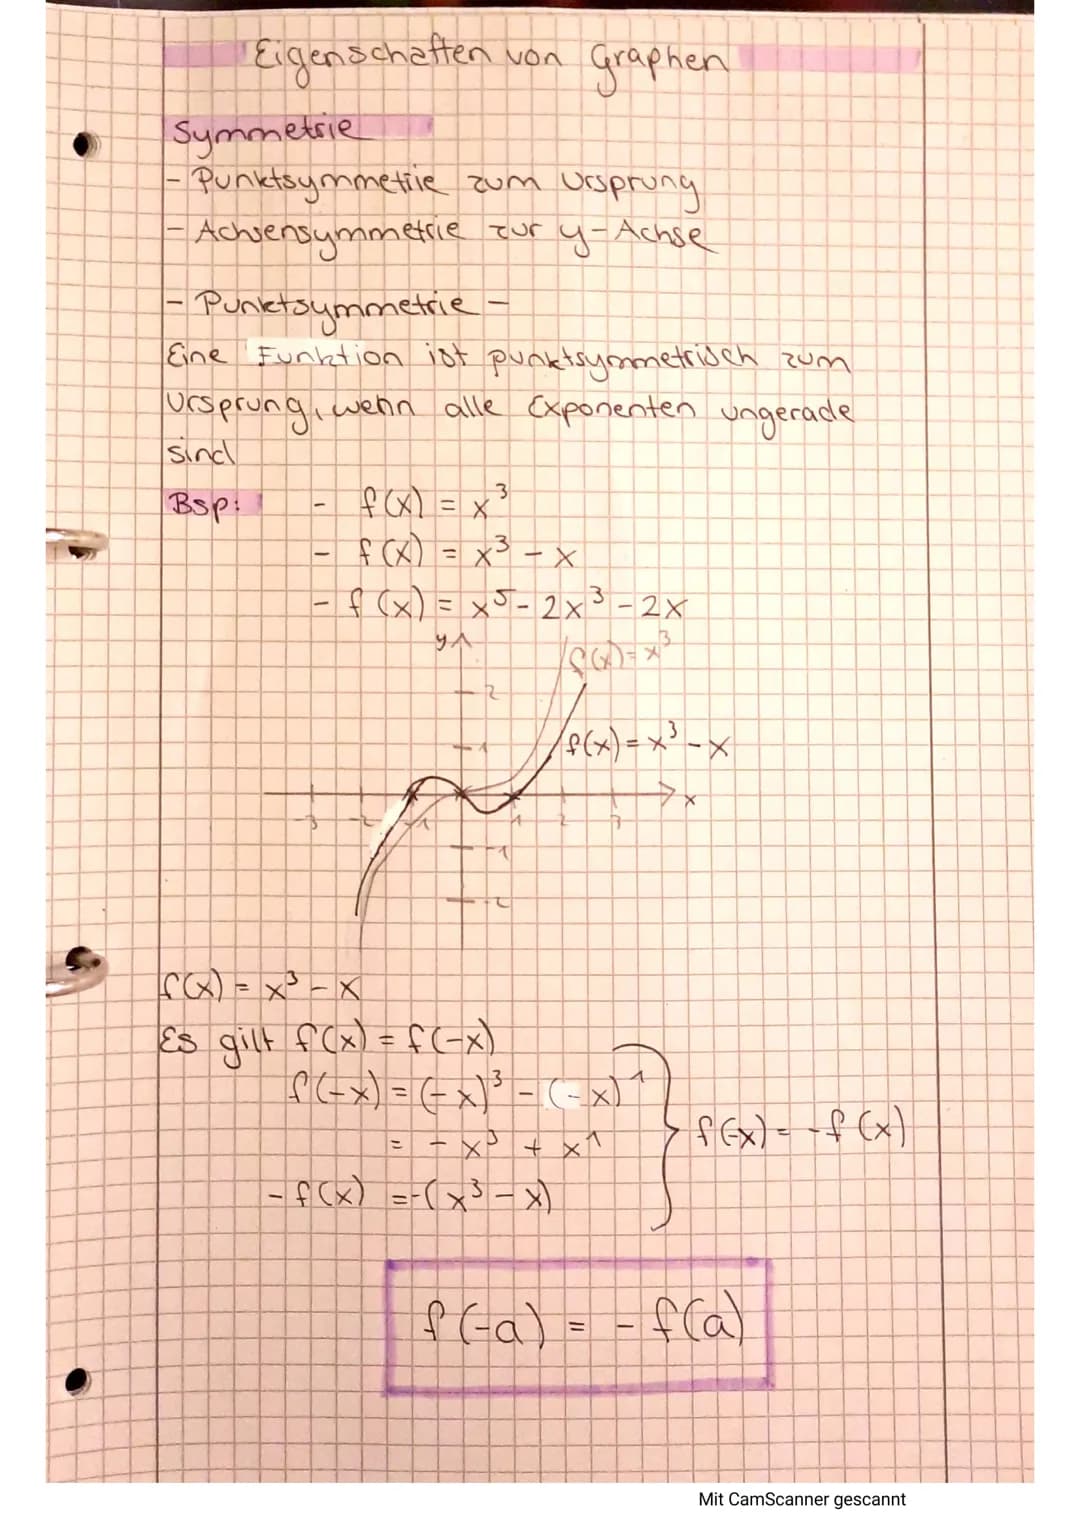 Eigenschaften von Graphen
Symmetrie
- Punktsymmetrie zum Ursprung
- Achsensymmetrie zur y-Achse
- Punktsymmetrie -
Eine Funktion ist punktsymmetrisch zum
Ursprung, wenn alle Exponenten ungerade
sind
Bsp: - f(x) = x³
- f(x) = x³ - x
- f(x) = x⁵ - 2x³ - 2x
y
f(x) = x³
2
f(x) = x³ - x
1
x
-3 -2 -1 1 2 3
-1
-2
f(x) = x³ - x
Es gilt f(x) = f(-x)
f(-x) = (-x)³ - (-x)¹
= - x³ + x¹
f(-x) = -f(x)
-f(x) = -(x³ - x)
f(-a) = - f(a)
Mit CamScanner gescannt